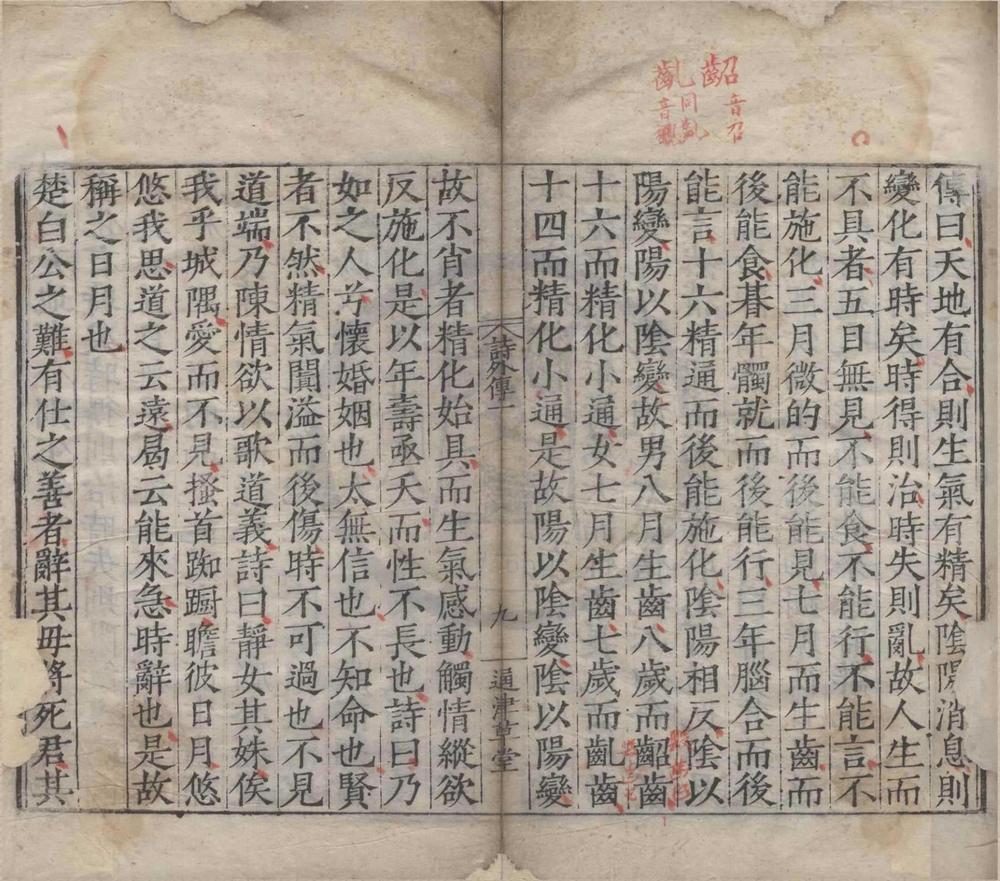 齠音召
齔同齓音襯
傳曰天地有合則生氣有精矣陰陽消息則
變化有時矣時得則治時失則亂故人生而
不具者五目無見不能食不能行不能言不
能施化三月微的而後能見七月而生齒而
後能食朞年髑就而後能行三年腦合而後
能言十六精通而後能施化陰陽相反陰以
陽變陽以陰變故男八月生齒八歲而齠齒
十六而精化小通女七月生齒七歲而齔齒
十四而精化小通是故陽以陰變陰以陽變
詩外傳一
九
通津草堂
故不肖者精化始具而生氣感動觸情縱欲
反施化是以年壽亟夭而性不長也詩曰乃
如之人兮懷婚姻也太無信也不知命也賢
者不然精氣闐溢而後傷時不可過也不見
道端乃陳情欲以歌道義詩曰靜女其姝俟
我乎城隅愛而不見搔首踟躕瞻彼日月悠
悠我思道之云遠曷云能來急時辭也是故
稱之日月也
楚白公之難有仕之善者辭其母將死君其